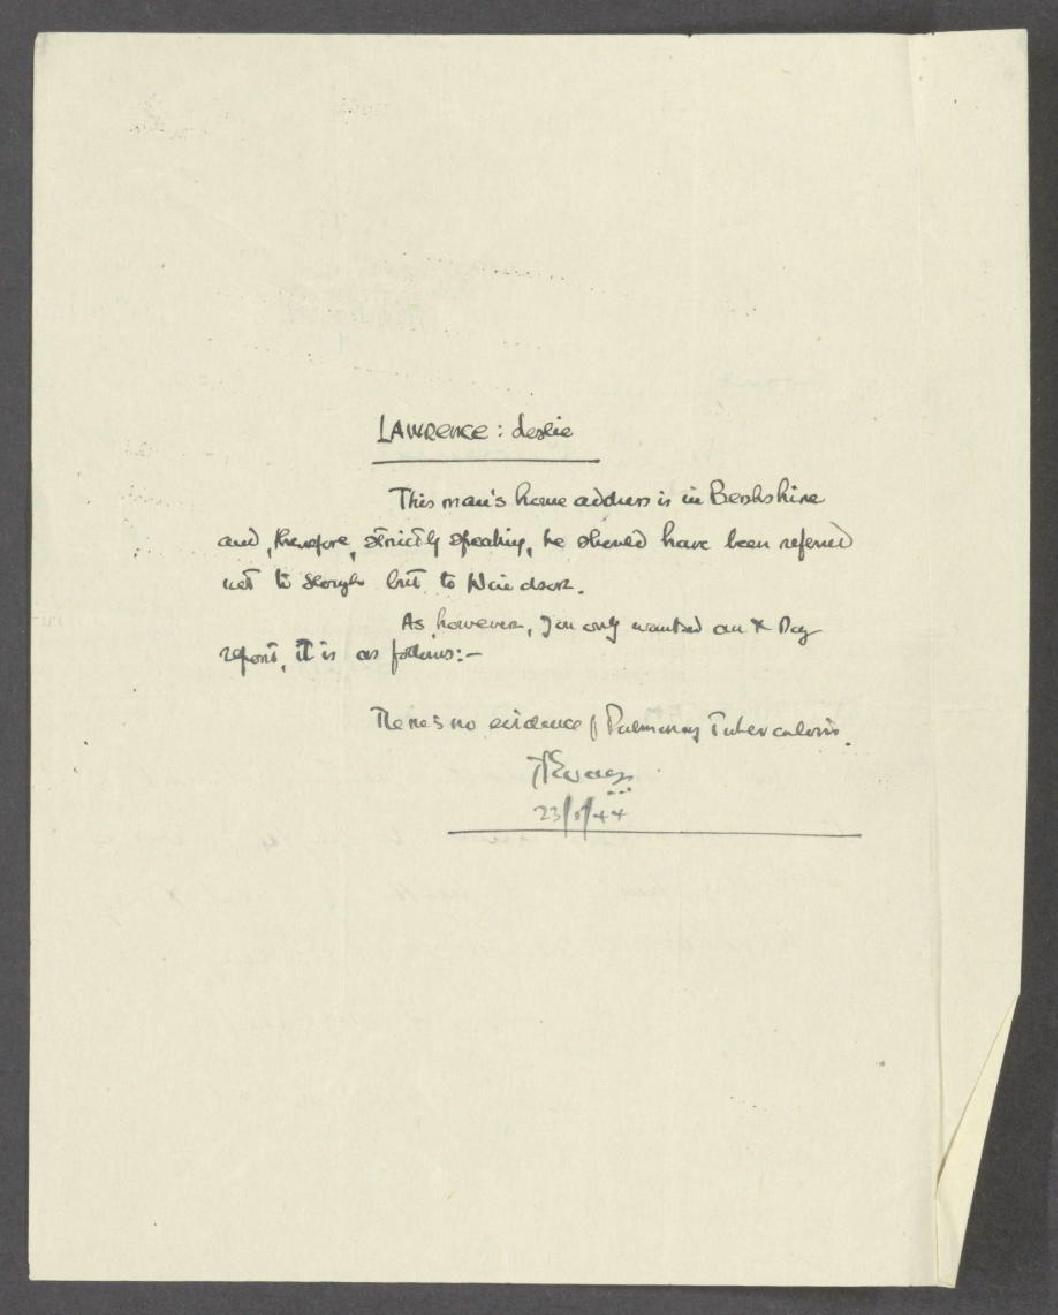 LAWRENCE: Leslie
This man's home address is in Berkshire
and, therefore, strictly speaking, he should have been referred
not to Slough but to Windsor.
As however, you only wanted an X Ray
report, it is as follows:-
There's no evidence of Pulmonary Tuberculosis.